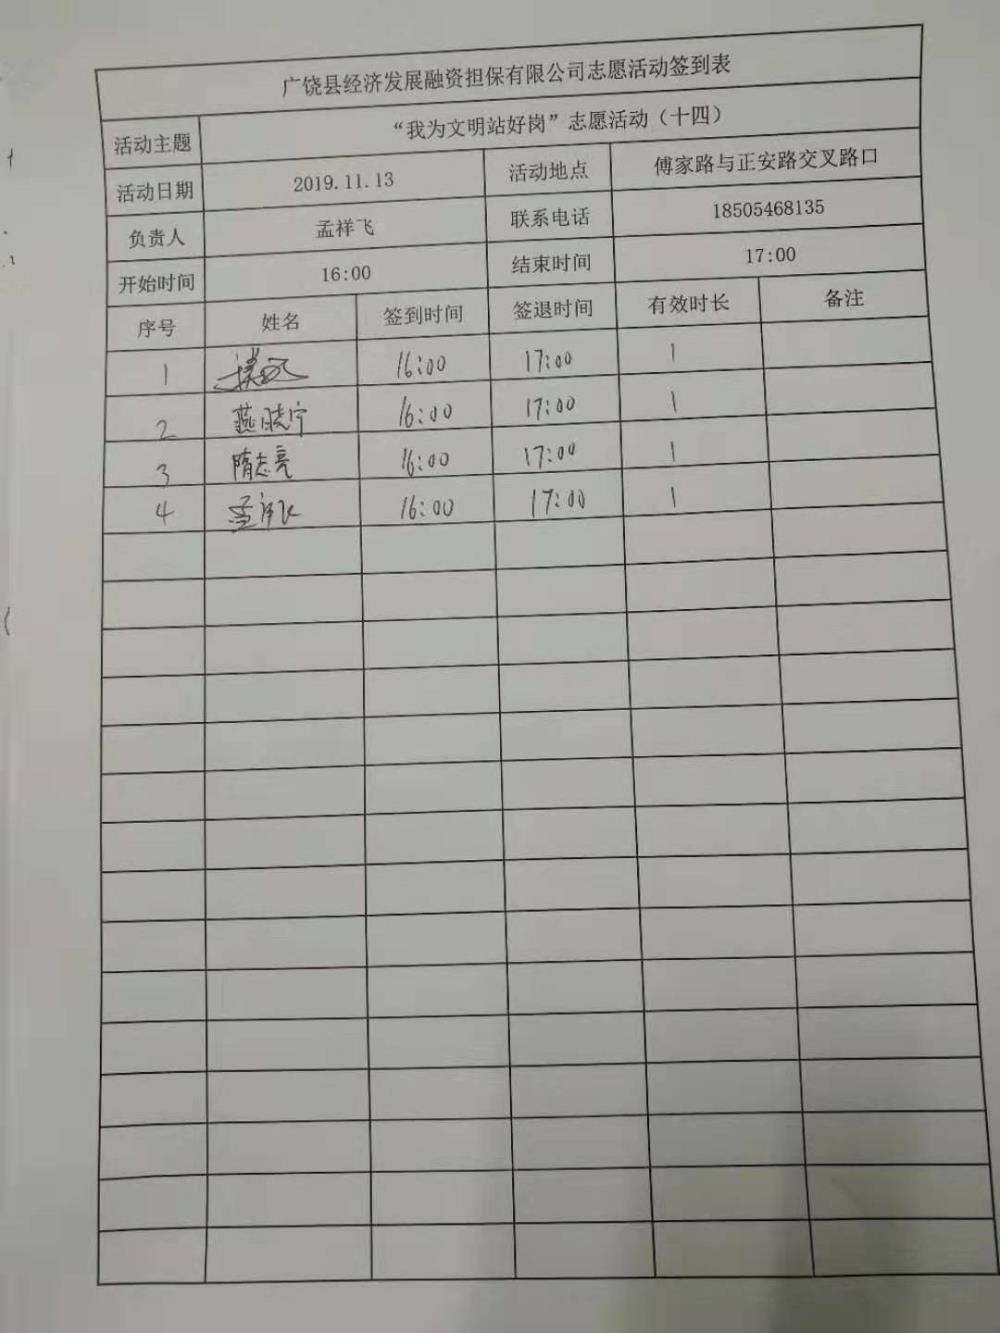 广饶县经济发展融资担保有限公司志愿活动签到表
活动主题 “我为文明站好岗”志愿活动（十四）
活动日期 2019.11.13 活动地点 傅家路与正安路交叉路口
负责人 孟祥飞 联系电话 18505468135
开始时间 16:00 结束时间 17:00
序号 姓名 签到时间 签退时间 有效时长 备注
1 16:00 17:00 1
2 燕晓宁 16:00 17:00 1
3 隋志亮 16:00 17:00 1
4 16:00 17:00 1